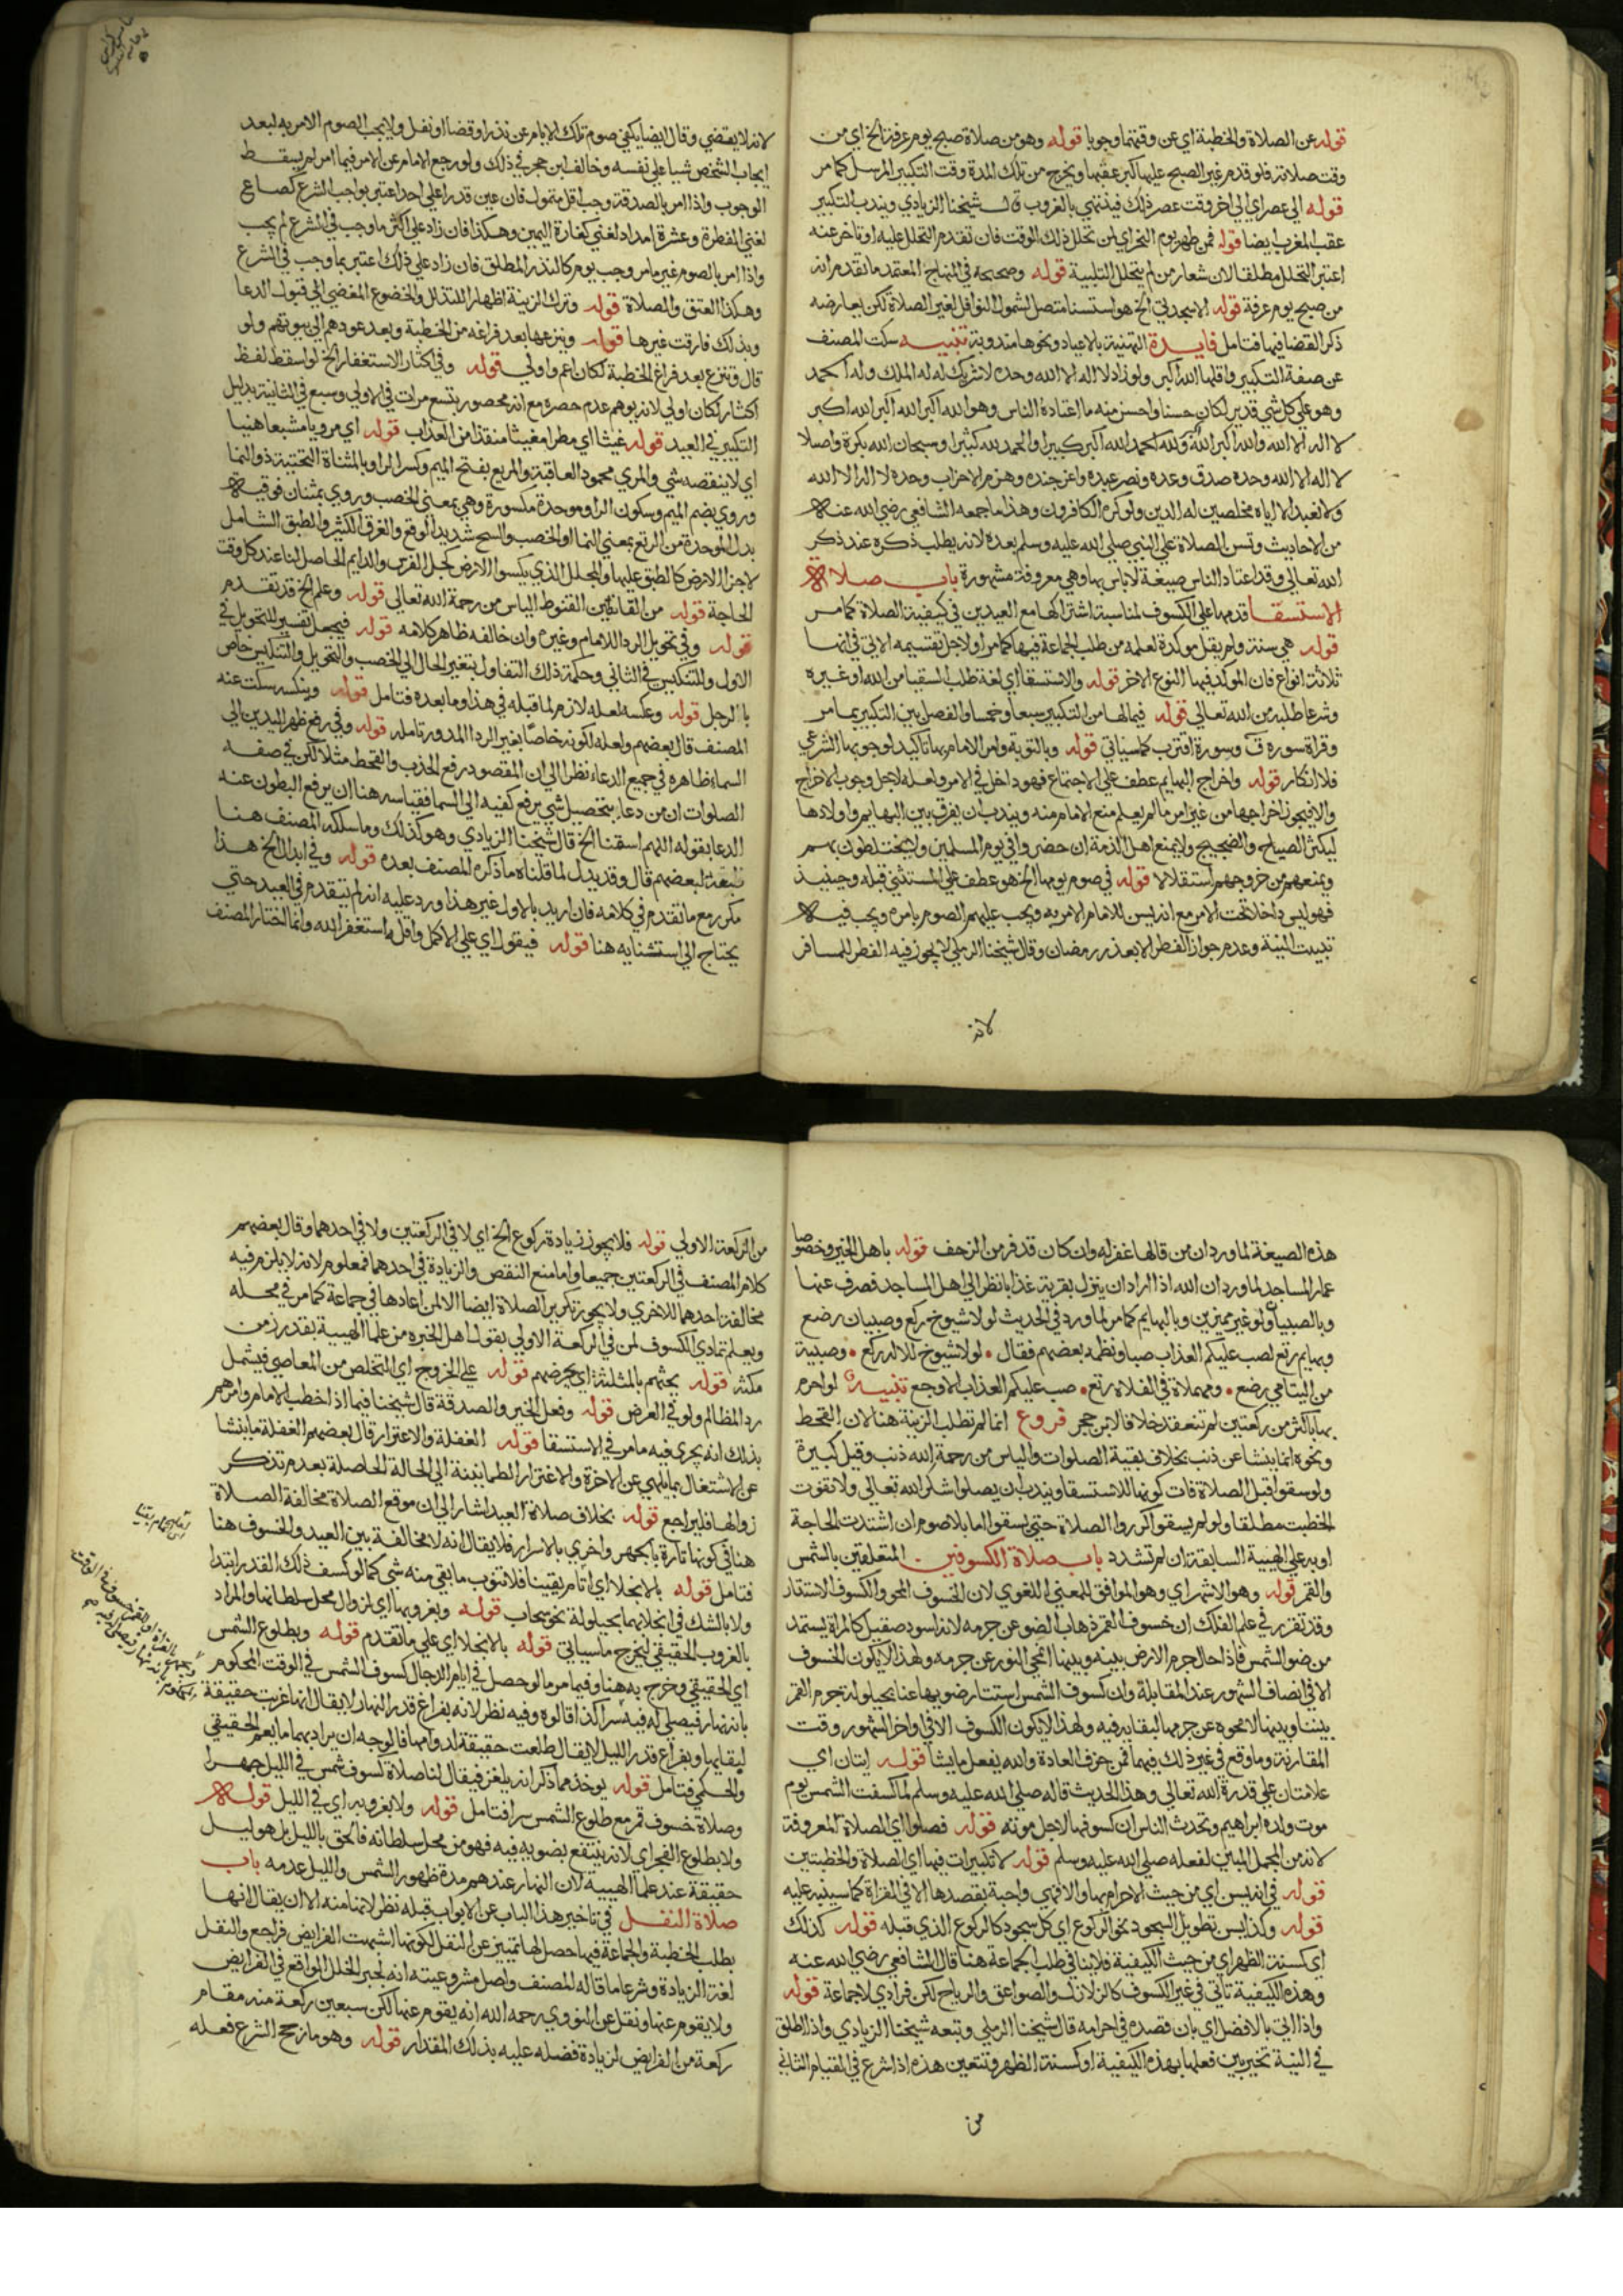 قوله عن الصلاة والخطبة اي عن وقتهما وجوبا قوله وهو من صلاة صبح يوم عرفة الخ اي من
وقت صلاته فلو قدم غير الصبح عليها كبر عقبها ويخرج من تلك المدة وقت التكبير المرسل كما مر
قوله الي عصر اي الي اخر وقت عصر ذلك فينتهي بالغروب قال شيخنا الزيادي ويندب التكبير
عقب المغرب ايضا قوله فمن ظهر يوم النحر اي لمن تحلل ذلك الوقت فان تقدم التحلل عليه او تاخر عنه
اعتبر التحلل مطلقا لان شعار من لم يتحلل التلبية قوله وصححه في المنهاج المعتمد ما تقدم انه
من صبح يوم عرفة قوله الا سجدتي الخ هو استثنا متصل لشمول النوافل لغير الصلاة لكن يعارضه
ذكر القضا فيها فتامل فايدة التهنية بالاعياد ونحوها مندوبة تنبيه سكت المصنف
عن صفة التكبير واقلها الله اكبر ولو زاد لا اله الا الله وحده لا شريك له له الملك وله الحمد
وهو علي كل شي قدير لكان حسنا واحسن منه ما اعتاده الناس وهو الله اكبر الله اكبر الله اكبر
لا اله الا الله والله اكبر الله اكبر ولله الحمد الله اكبر كبيرا والحمد لله كثيرا وسبحان الله بكرة واصيلا
لا اله الا الله وحده صدق وعده ونصر عبده واعز جنده وهزم الاحزاب وحده لا اله الا الله
ولا نعبد الا اياه مخلصين له الدين ولو كره الكافرون وهذا ما جمعه الشافعي رضي الله عنه
من الاحاديث وتسن الصلاة علي النبي صلي الله عليه وسلم بعده لانه يطلب ذكره عند ذكر
الله تعالي وقد اعتاد الناس صيغة لا باس بها وهي معروفة مشهورة باب صلاة
الاستسقا قدمها علي الكسوف لمناسبة اشتراكها مع العيدين في كيفية الصلاة كما مر
قوله هي سنة ولم يقل موكدة لعلمه من طلب الجماعة فيها كما مر او لاجل تقسيمه الاتي في انها
ثلاثة انواع فان الموكد فيها النوع الاخر قوله والاستسقا اي لغة طلب السقيا من الله او غيره
وشرعا طلبه من الله تعالي قوله فيما لها من التكبير سبعا وخمسا والفصل بين التكبير بما مر
وقراة سورة ق وسورة اقترب كما سياتي قوله وبالتوبة وامر الامام بها تاكيد لوجوبها الشرعي
فلا انكار قوله واخراج البهايم عطف علي الاجتماع فهو داخل في الامر ولعله لاجل وجوب الاخراج
والا فيجوز اخراجها من غير امر ما لم يعلم منع الامام منه ويندب ان يفرق بين البهايم واولادها
ليكثر الصياح والضجيج ولا يمنع اهل الذمة ان حضروا في يوم المسلمين ولا يختلطون بهم
ويمنعهم من خروجهم استقلالا قوله في صوم يومها الخ هو عطف علي المستثني قبله وحينيذ
فهو ليس داخلا تحت الامر مع انه يسن للامام الامر به ويجب عليهم الصوم بامره ويجب فيه
تبييت النية وعدم جواز الفطر الا بعذر رمضان وقال شيخنا الرملي لا يجوز فيه الفطر للمسافر
لانه
لانه لا يقضي وقال ايضا يكفي صوم تلك الايام عن نذر او قضا او نفل ولا يجب الصوم الامر به لبعد
ايجاب الشخص شيا علي نفسه وخالف ابن حجر في ذلك ولو رجع الامام عن الامر فيما امر لم يسقط
الوجوب واذا امر بالصدقة وجب اقل متمول فان عين قدرا علي احد اعتبر بواجب الشرع كصاع
لغني الفطرة وعشرة امداد لغني كفارة اليمين وهكذا فان زاد علي اكثر ما وجب في الشرع لم يجب
واذا امر بالصوم غير ما مر وجب يوم كالنذر المطلق فان زاد علي ذلك اعتبر بما وجب في الشرع
وهكذا العتق والصلاة قوله وترك الزينة اظهارا للتذلل والخضوع المفضي الي قبول الدعا
وبذلك فارقت غيرها قوله وينزعها بعد فراغه من الخطبة وبعد عودهم الي بيوتهم ولو
قال وتنزع بعد فراغ الخطبة لكان اعم واولي قوله وفي اكثار الاستغفار الخ لو اسقط لفظ
اكثار لكان اولي لانه يوهم عدم حصره مع انه محصور بتسع مرات في الاولي وسبع في الثانية بدليل
التكبير في العيد قوله غيثا اي مطرا مغيثا منقذا من العذاب قوله اي مرويا مشبعا هنيا
اي لا ينغصه شي والمري محمود العاقبة والمريع بفتح الميم وكسر الرا وبالمثناة التحتية ذو النما
وروي بضم الميم وسكون الرا وموحدة مكسورة وهي بمعني الخصب وروي بمثناة فوقية
بدل الموحدة من الرتع بمعني النما او الخصب والسح شديد الوقع والغدق الكثير والطبق الشامل
لاجزا الارض كالطبق عليها والمجلل الذي يكسو الارض كجل الفرس والدايم الحاصل لنا عند كل وقت
الحاجة قوله من القانطين القنوط الياس من رحمة الله تعالي قوله وعلم الخ قد تقدم
قوله وفي تحويل الردا للامام وغيره وان خالفه ظاهر كلامه قوله فيجعل تفسير للتحويل في
الاول والتنكيس في الثاني وحكمة ذلك التفاول بتغير الحال الي الخصب والتحويل والتنكيس خاص
بالرجل قوله وعكسه لعله لازم لما قبله في هذا وما بعده فتامل قوله وينكسه سكت عنه
المصنف قال بعضهم ولعله لكونه خاصا بغير الردا المدور تامله قوله وفي رفع ظهر اليدين الي
السماء ظاهره في جميع الدعاء نظرا الي ان المقصود رفع الجذب والقحط مثلا لكن في صفة
الصلوات ان من دعا بتحصيل شي يرفع كفيه الي السما فقياسه هنا ان يرفع البطون عنه
الدعا بقوله اللهم اسقنا الخ قال شيخنا الزيادي وهو كذلك وما سلكه المصنف هنا
تبعا لبعضهم قال وقد يدل لما قلناه ما ذكره المصنف بعده قوله وفي ابدال الخ هذا
مكرر مع ما تقدم في كلامه فان اريد بالاول غير هذا ورد عليه انه لم يتقدم في العيد حتي
يحتاج الي استثنايه هنا قوله فيقول اي علي الاكمل واقله استغفر الله وانما اختار المصنف
هذه الصيغة لما ورد ان من قالها غفر له وان كان قد فر من الزحف قوله باهل الخير وخصوصا
عمار المساجد لما ورد ان الله اذا اراد ان ينزل بقرية عذابا نظر الي اهل المساجد فصرف عنها
وبالصبيان ولو غير مميزين وبالبهايم كما مر لما ورد في الحديث لولا شيوخ ركع وصبيان رضع
وبهايم رتع لصب عليكم العذاب صبا ونظمه بعضهم فقال لولا شيوخ للاله ركع وصبية
من اليتامي رضع ومهملاة في الفلاة رتع صب عليكم العذاب الاوجع تنبيه لو احرم
بها باكثر من ركعتين لم تنعقد خلافا لابن حجر فروع انما لم تطلب الزينة هنا لان القحط
ونحوه انما ينشا عن ذنب بخلاف بقية الصلوات والياس من رحمة الله ذنب وقيل كبيرة
ولو سقوا قبل الصلاة فات كونها للاستسقا ويندب ان يصلوا شكر الله تعالي ولا تفوت
الخطبة مطلقا ولو لم يسقوا كرروا الصلاة حتي يسقوا اما بلا صوم ان اشتدت الحاجة
او به علي الهيية السابقة ان لم تشتدد باب صلاة الكسوفين المتعلقين بالشمس
والقمر قوله وهو الاشهر اي وهو الموافق للمعني اللغوي لان الخسوف المحو والكسوف الاستتار
وقد تقرر في علم الفلك ان خسوف القمر ذهاب الضو عن جرمه لانه اسود صقيل كالمراة يستمد
من ضو الشمس فاذا حال جرم الارض بينه وبينها انمحي النور عن جرمه ولهذا لا يكون الخسوف
الا في انصاف الشهور عند المقابلة وان كسوف الشمس استتار ضويها عنا بحيلولة جرم القمر
بيننا وبينها لا محوه عن جرمها لبقايه فيه ولهذا لا يكون الكسوف الا في اواخر الشهور وقت
المقارنة وما وقع في غير ذلك فيهما فمن خرق العادة والله يفعل ما يشا قوله ايتان اي
علامتان علي قدرة الله تعالي وهذا الحديث قاله صلي الله عليه وسلم لما كسفت الشمس يوم
موت ولده ابراهيم وتحدث الناس ان كسوفها لاجل موته قوله فصلوا اي الصلاة المعروفة
لانه من المجمل المبين لفعله صلي الله عليه وسلم قوله لا تكبيرات فيها اي الصلاة والخطبتين
قوله في انه يسن اي من حيث الاحرام بها والا فهي واجبة بقصدها الا في القراة كما سينبه عليه
قوله وكذا يسن تطويل السجود نحو الركوع اي كل سجود كالركوع الذي قبله قوله كذلك
اي كسنة الظهر اي من حيث الكيفية فلا ينافي طلب الجماعة هنا قال الشافعي رضي الله عنه
وهذه الكيفية تاتي في غير الكسوف كالزلازل والصواعق والرياح لكن فرادي لا جماعة قوله
واذا اتي بالافضل اي بان قصده في احرامه قال شيخنا الرملي وتبعه شيخنا الزيادي واذا اطلق
في النية تخير بين فعلها بهذه الكيفية او كسنة الظهر وتتعين هذه اذا شرع في القيام الثاني
من
من الركعة الاولي قوله فلا يجوز زيادة ركوع الخ اي لا في الركعتين ولا في احدهما وقال بعضهم
كلام المصنف في الركعتين جميعا واما منع النقص والزيادة في احدهما فمعلوم لانه لا يلزم فيه
مخالفة احدهما للاخري ولا يجوز تكرير الصلاة ايضا الا لمن اعادها في جماعة كما مر في محله
ويعلم تمادي الكسوف لمن في الركعة الاولي بقول اهل الخبره من علما الهيية بقدر زمن
مكثه قوله يحثهم بالمثلثة اي يحرضهم قوله علي الخروج اي التخلص من المعاصي فيشمل
رد المظالم ولو في العرض قوله وفعل الخير والصدقة قال شيخنا فيما اذا خطب الامام وامرهم
بذلك انه يجري فيه ما مر في الاستسقا قوله الغفلة والاغترار قال بعضهم الغفلة ما ينشا
عن الاشتغال بما يلهي عن الاخرة والاغترار الطمانينة الي الحالة الحاصلة بعدم تذكر
زوالها فليراجع قوله بخلاف صلاة العيد اشار الي ان موقع الصلاة مخالفة الصلاة
هنا في كونها تارة بالجهر واخري بالاسرار فلا يقال انه لا مخالفة بين العيد والخسوف هنا
فتامل قوله بالانجلا اي التام يقينا فلا تفوت ما بقي منه شي كما لو كسف ذلك القدر ابتدا
ولا بالشك في انجلايهما بحيلولة نحو سحاب قوله وبغروبها اي لزوال محل سلطانها والمراد
بالغروب الحقيقي ليخرج ما سياتي قوله بالانجلا اي علي ما تقدم قوله وبطلوع الشمس
اي الحقيقي وخرج به هنا وفيما مر ما لو حصل في ايام الدجال كسوف الشمس في الوقت المحكوم
بانه نهار فيصلي له فيه سرا كذا قالوه وفيه نظر لانه بفراغ قدر النهار لا يقال انها غربت حقيقة
ليقابلها وبفراغ قدر الليل لا يقال طلعت حقيقة لدوامها فالوجه ان يراد بهما ما يعم الحقيقي
والحكمي فتامل قوله يوخذ مما ذكر انه يلغز فيقال لنا صلاة كسوف شمس في الليل جهرا
وصلاة خسوف قمر مع طلوع الشمس سرا فتامل قوله ولا بغروبه اي في الليل قوله
ولا بطلوع الفجر اي لانه ينتفع بضويه فيه فهو من محل سلطانه فالحق بالليل بل هو ليل
حقيقة عند علما الهييه لان النهار عندهم مدة ظهور الشمس والليل عدمه باب
صلاة النفل في تاخير هذا الباب عن الابواب قبله نظر لانها منه الا ان يقال انها
بطلب الخطبة والجماعة فيها حصل لها تمييز عن النفل لكونها اشبهت الفرايض فراجع والنفل
لغة الزيادة وشرعا ما قاله المصنف واصل مشروعيته انه لجبر الخلل الواقع في الفرايض
ولا يقوم عنها ونقل عن النووي رحمه الله انه يقوم عنها لكن سبعين ركعة منه مقام
ركعة من الفرايض لزيادة فضله عليه بذلك المقدار قوله وهو ما رجح الشرع فعله